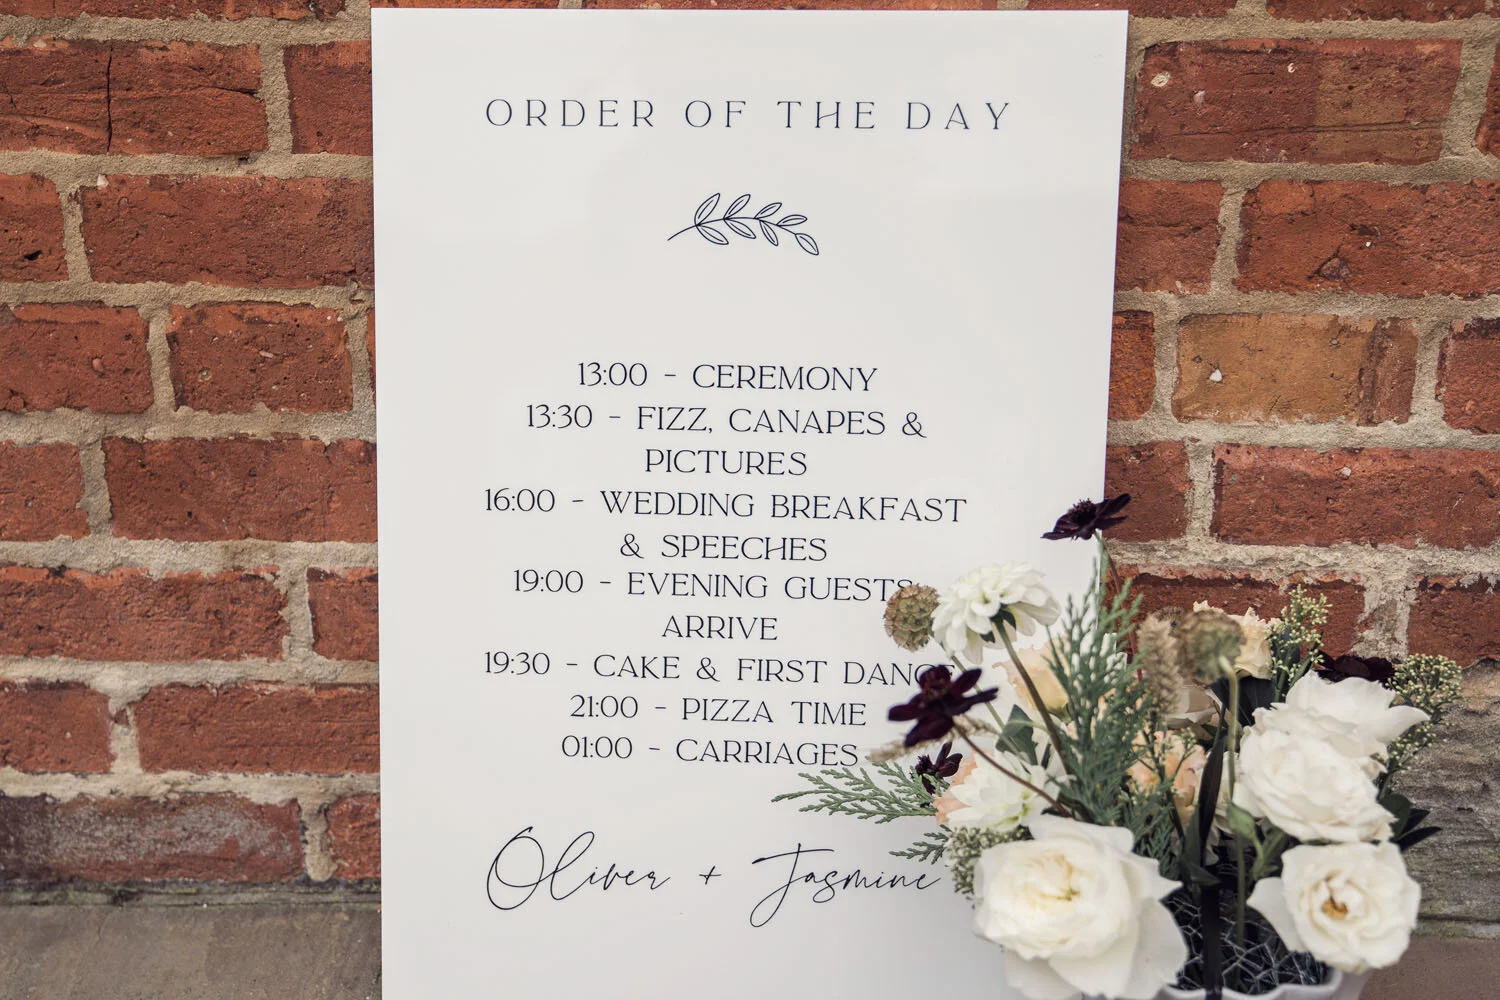 ORDER OF THE DAY
13:00 - CEREMONY
13:30 - FIZZ, CANAPES &
PICTURES
16:00 - WEDDING BREAKFAST
& SPEECHES
19:00 - EVENING GUESTS
ARRIVE
19:30 - CAKE & FIRST DANCE
21:00 - PIZZA TIME
01:00 - CARRIAGES
Oliver + Jasmine